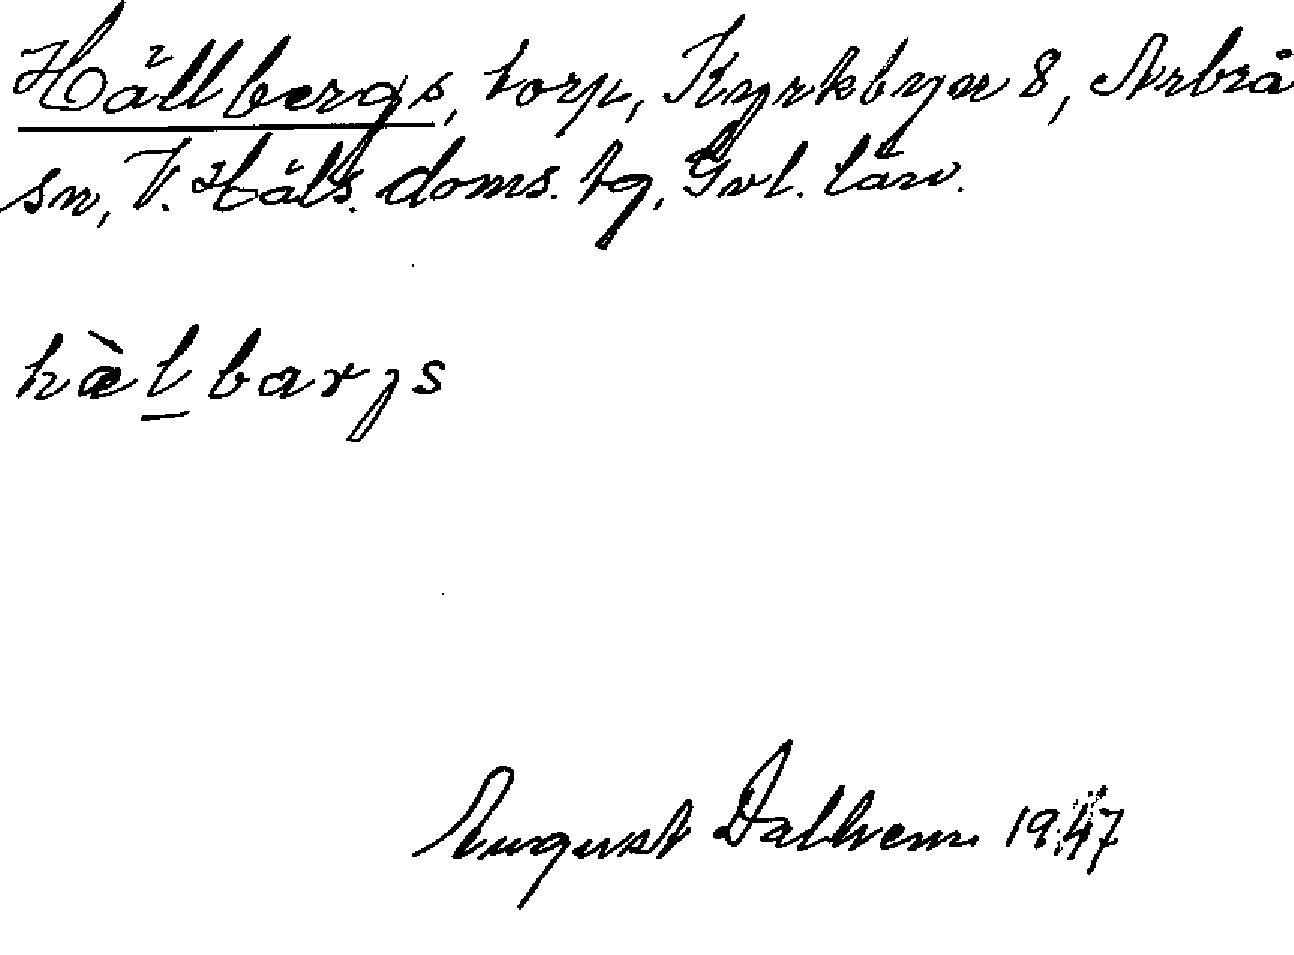 Hällbergs, torp, Kyrkbyn 8, Arbrå
sn, V. Häls. doms. tg, Gvl. län.
hæ̀l̠barȷs
August Dalhem 1947